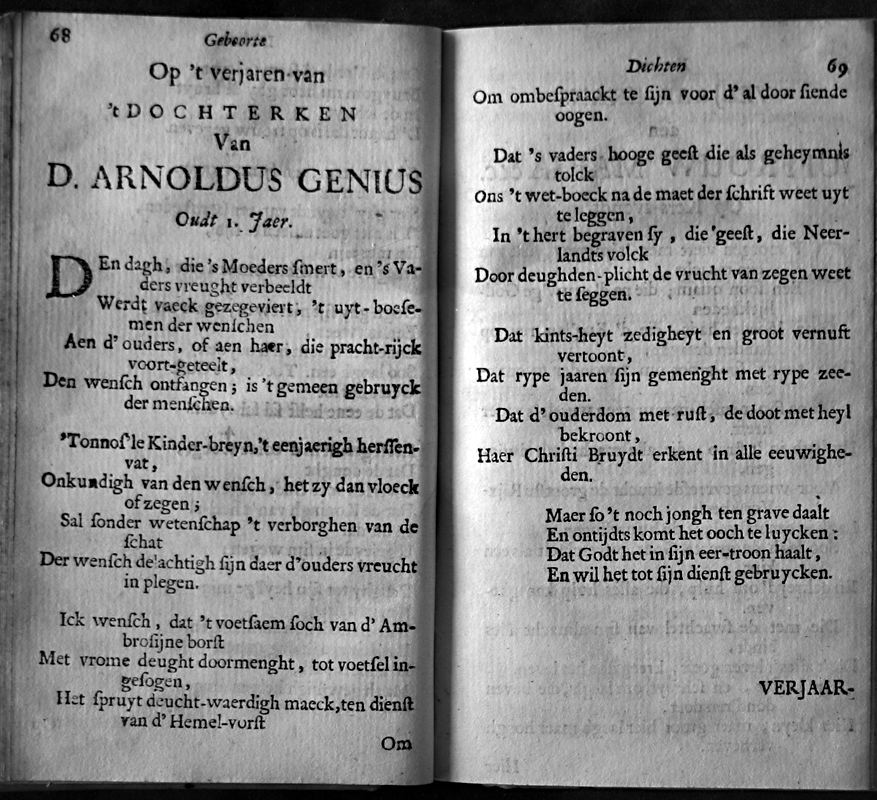 68
Geboorte
Op 't verjaren van
't DOCHTERKEN
Van
D. ARNOLDUS GENIUS
Oudt 1. Jaer.
DEn dagh, die 's Moeders ſmert, en 's Va-
ders vreught verbeeldt
Werdt vaeck gezegeviert, 't uyt-boeſe-
men der wenſchen
Aen d' ouders, of aen haer, die pracht-rijck
voort-geteelt,
Den wenſch ontfangen; is 't gemeen gebruyck
der menſchen.
'Tonnoſ'le Kinder-breyn, 't eenjaerigh herſſen-
vat,
Onkundigh van den wenſch, het zy dan vloeck
of zegen;
Sal ſonder wetenſchap 't verborghen van de
ſchat
Der wenſch de'achtigh ſijn daer d'ouders vreucht
in plegen.
Ick wenſch, dat 't voetſaem ſoch van d' Am-
broſijne borſt
Met vrome deught doormenght, tot voetſel in-
geſogen,
Het ſpruyt deucht-waerdigh maeck, ten dienſt
van d' Hemel-vorſt
Om
Dichten
69
Om ombeſpraackt te ſijn voor d' al door ſiende
oogen.
Dat 's vaders hooge geeſt die als geheymnis
tolck
Ons 't wet-boeck na de maet der ſchrift weet uyt
te leggen,
In 't hert begraven ſy, die 'geeſt, die Neer-
landts volck
Door deughden-plicht de vrucht van zegen weet
te ſeggen.
Dat kints-heyt zedigheyt en groot vernuft
vertoont,
Dat rype jaaren ſijn gemenght met rype zee-
den.
Dat d' ouderdom met ruſt, de doot met heyl
bekroont,
Haer Chriſti Bruydt erkent in alle eeuwighe-
den.
Maer ſo 't noch jongh ten grave daalt
En ontijdts komt het ooch te luycken:
Dat Godt het in ſijn eer-troon haalt,
En wil het tot ſijn dienſt gebruycken.
VERJAAR-